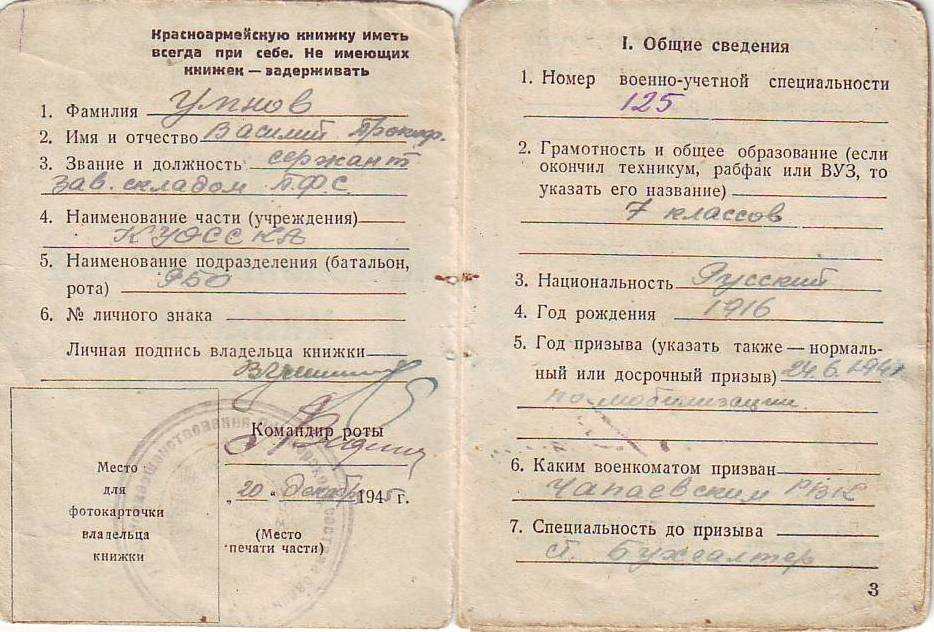 Красноармейскую книжку иметь
всегда при себе. Не имеющих
книжек — задерживать
1. Фамилия Умнов
2. Имя и отчество Василий Прокоф.
3. Звание и должность сержант
зав. складом ПФС
4. Наименование части (учреждения)
КУОССКА
5. Наименование подразделения (батальон,
рота) 950
6. № личного знака
Личная подпись владельца книжки
Командир роты
„20 “ декабр 1945 г.
Место
для
фотокарточки
владельца
книжки
(Место
печати части)
I. Общие сведения
1. Номер военно-учетной специальности
125
2. Грамотность и общее образование (если
окончил техникум, рабфак или ВУЗ, то
указать его название)
7 классов
3. Национальность Русский
4. Год рождения 1916
5. Год призыва (указать также — нормаль-
ный или досрочный призыв) 24.6.1941
по мобилизации
6. Каким военкоматом призван
Чапаевским РВК
7. Специальность до призыва
ст. бухгалтер
3